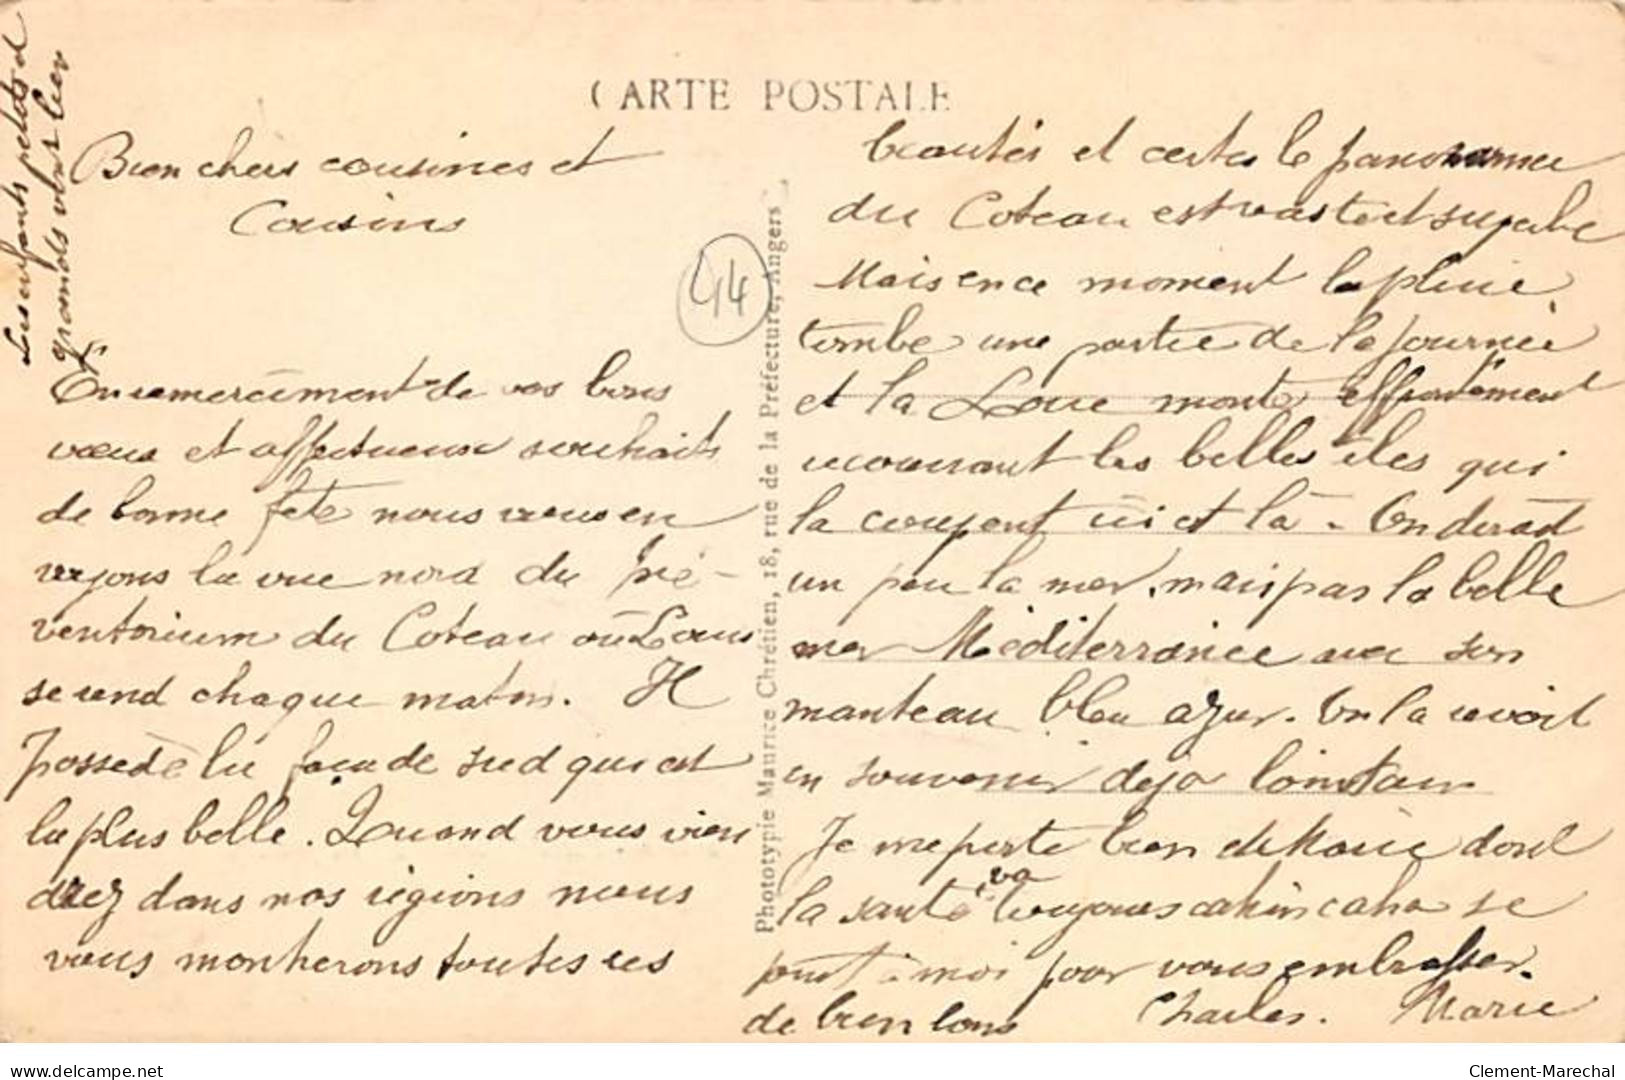 CARTE POSTALE
Les enfants petits et
grands vont bien
Bien chers cousines et
Cousins
En remerciement de vos bons
vœux et affectueux souhaits
de bonne fête nous vous en
voyons la vue nord du pré-
ventorium du Coteau où Louis
se rend chaque matin. Il
possède la façade sud qui est
la plus belle. Quand vous vien
drez dans nos régions nous
vous montrerons toutes ces
44
Phototypie Maurice Chrétien, 18, rue de la Préfecture, Angers
beautés et certes le panorama
du Coteau est vaste et superbe
Mais en ce moment la pluie
tombe une partie de la journée
et la Loire monte
recouvrant les belles îles qui
la coupent ici et là - On dirait
un peu la mer, mais pas la belle
mer Méditerranée avec son
manteau bleu azur. On la revoit
en souvenir déjà lointain
Je me porte bien et Marie dont
la santé va toujours cahin caha se
joint à moi pour vous embrasser.
de bien loin Charles. Marie
delcampe.net
Clement-Marechal